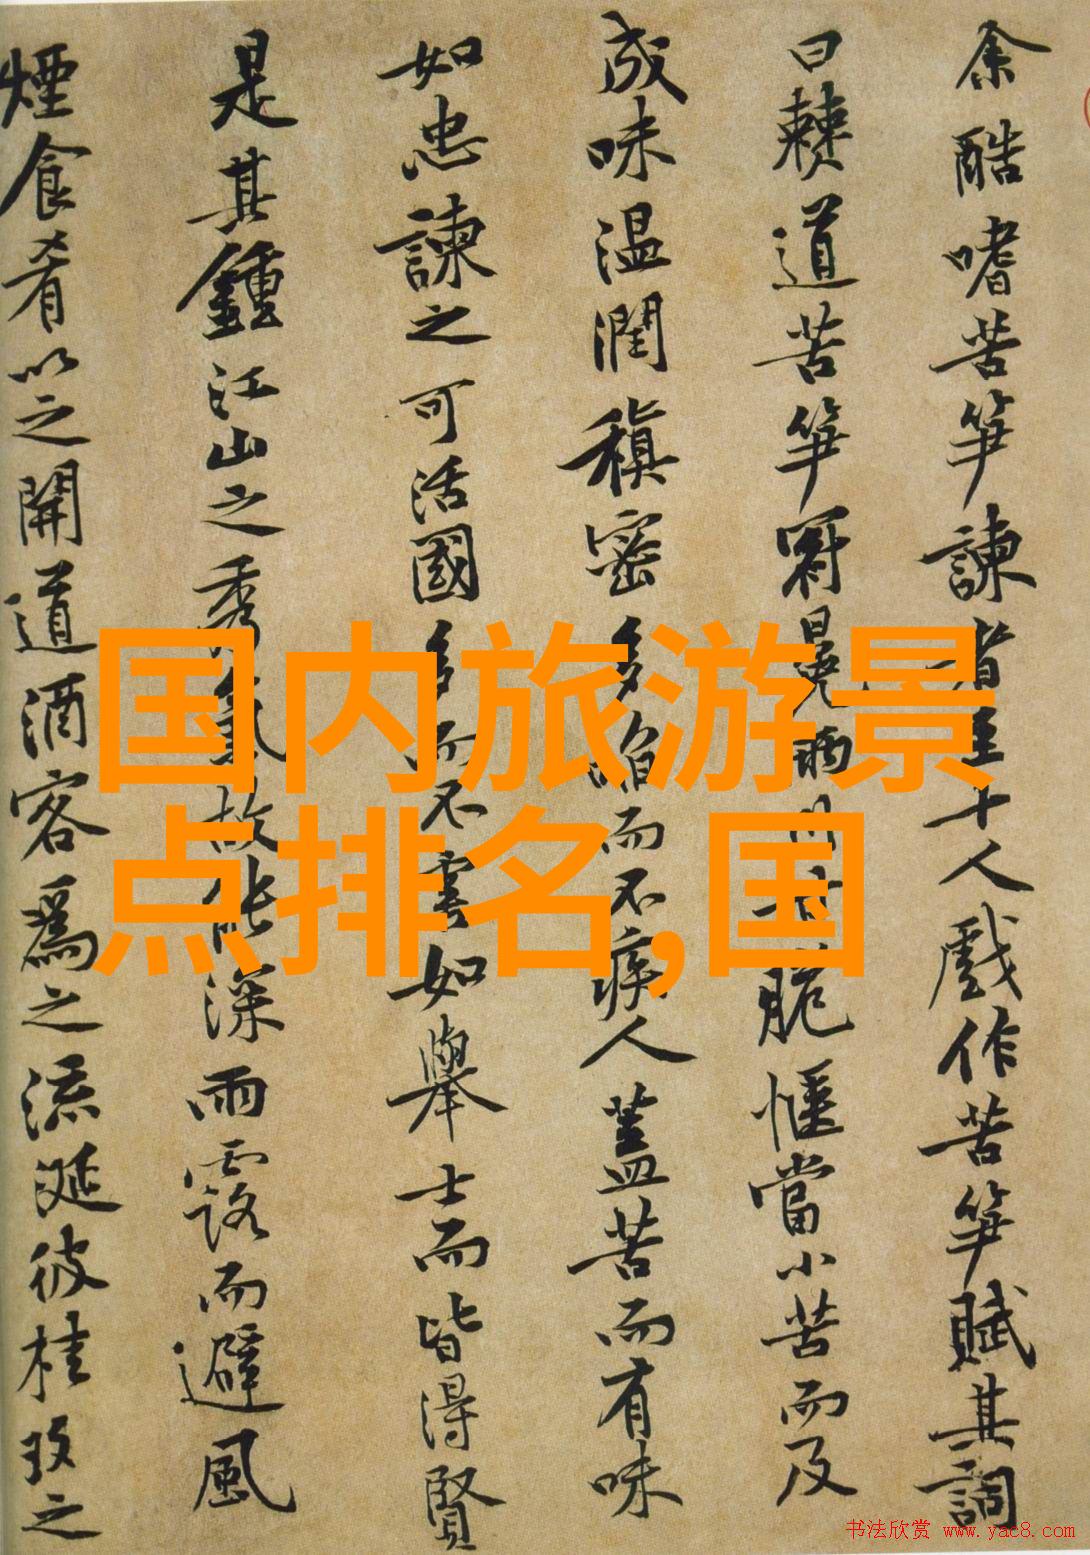 余酷嗜苦笋諫者至十人戲作苦笋賦其詞
曰僰道苦笋冠冕兩川甘脆愜當小苦而及
成味温潤稹密多啗而不疾人蓋苦而有味
如忠諫之可活國多而不害如舉士而皆得賢
是其鍾江山之秀氣故能深雨露而避風
煙食肴以之開道酒客爲之流涎彼桂玫之
国内旅游景
点排名,国
书法欣赏 www.yac8.com